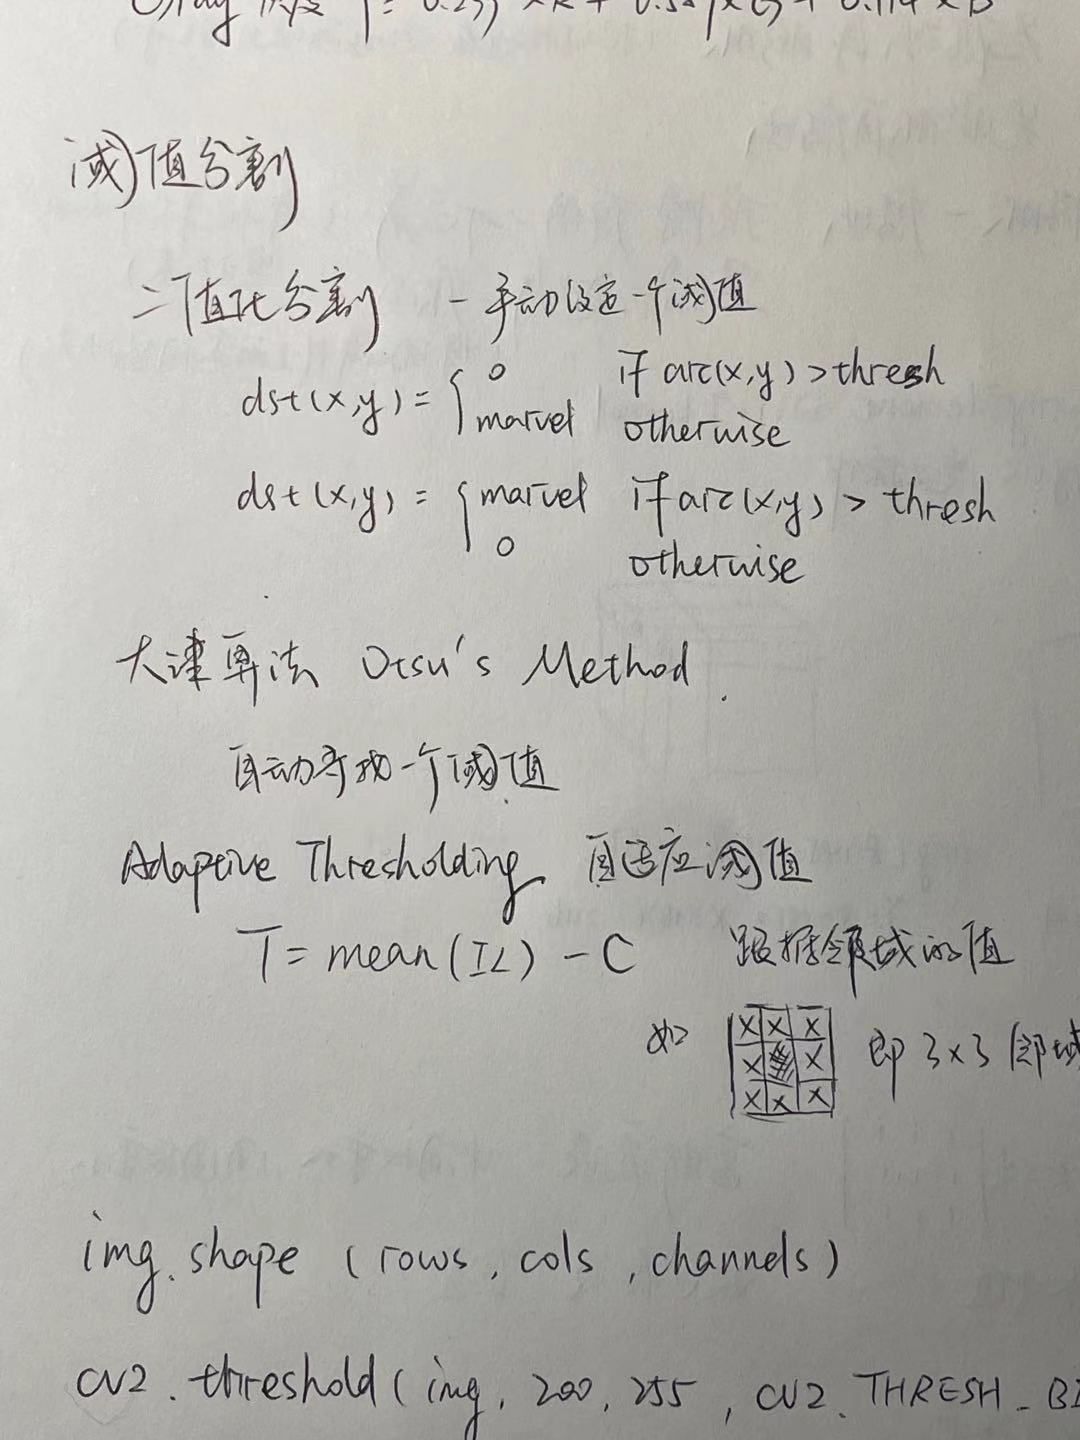 Gray 灰度 Y = 0.299×R + 0.587×G + 0.114×B
阈值分割
二值化分割 - 手动设定一个阈值
dst(x,y) = { 0 if arc(x,y) > thresh
marvel otherwise
dst(x,y) = { marvel if arc(x,y) > thresh
0 otherwise
大津算法 Otsu's Method.
自动寻找一个阈值
Adaptive Thresholding 自适应阈值
T = mean(IL) - C 跟据领域的值
如 X X X X X X X X 即 3×3 邻域
img.shape (rows, cols, channels)
cv2.threshold(img, 200, 255, cv2.THRESH_BI